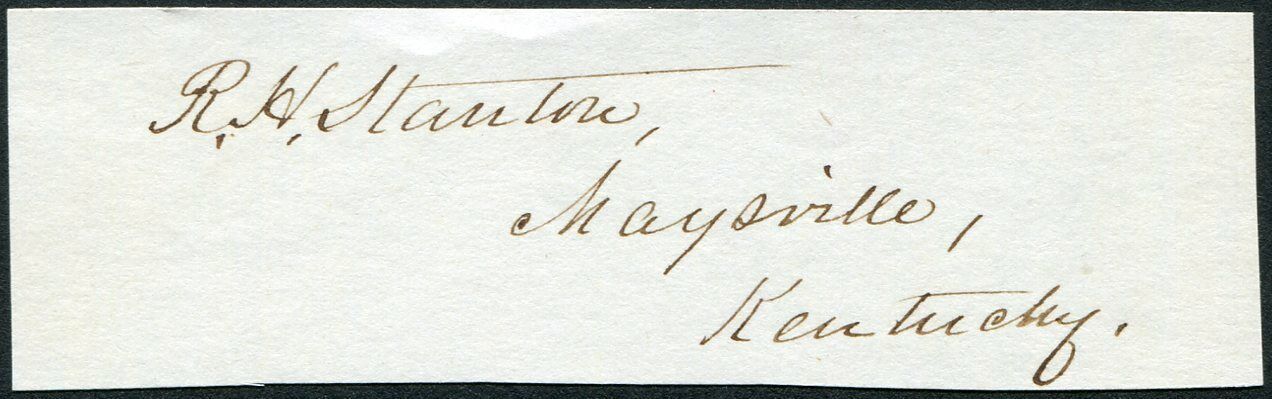 R. H. Stanton,
Maysville,
Kentucky.